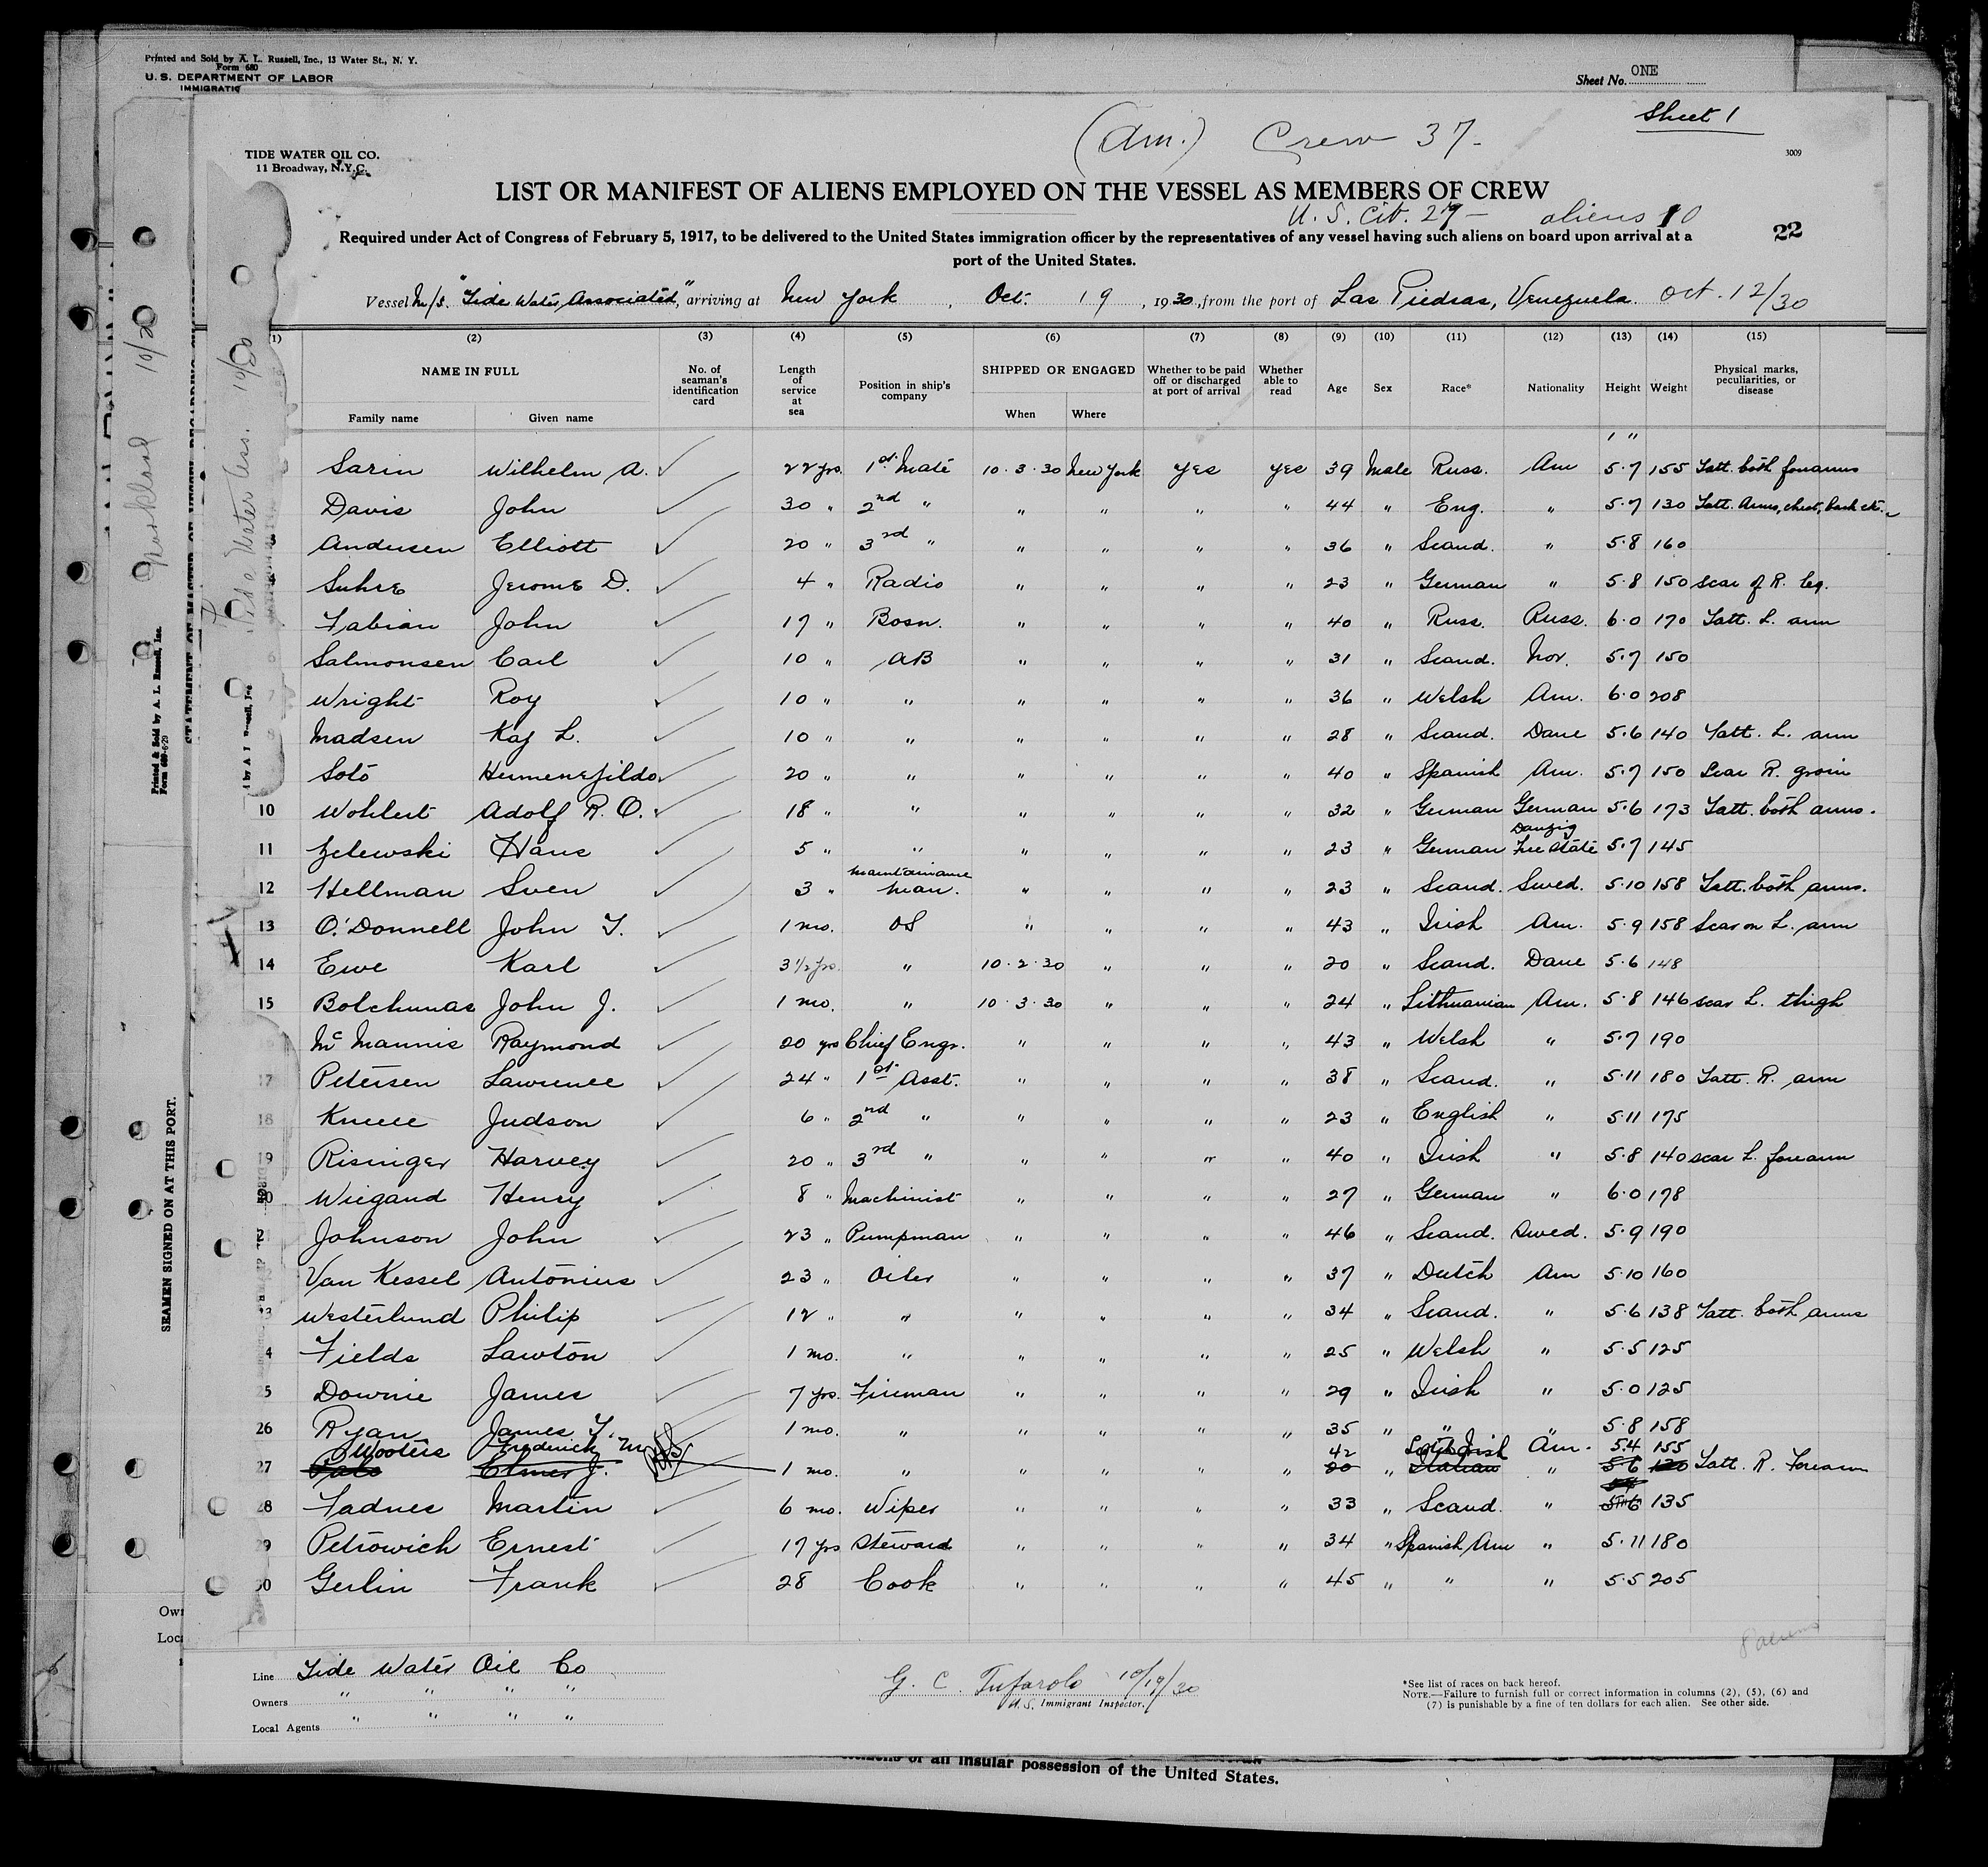 Printed and Sold by A. L. Russell, Inc., 13 Water St., N. Y.
Form 680
U. S. DEPARTMENT OF LABOR
IMMIGRATI
Sheet No. ONE
Sheet 1
(Am.) Crew 37-
3009
TIDE WATER OIL CO.
11 Broadway, N.Y.C.
LIST OR MANIFEST OF ALIENS EMPLOYED ON THE VESSEL AS MEMBERS OF CREW
U. S. Cit. 27 - aliens 10
Required under Act of Congress of February 5, 1917, to be delivered to the United States immigration officer by the representatives of any vessel having such aliens on board upon arrival at a
port of the United States.
22
Vessel M/S "Tide Water Associated", arriving at New York, Oct. 19, 1930, from the port of Las Piedras, Venezuela. Oct. 12/30
(1) (2) (3) (4) (5) (6) (7) (8) (9) (10) (11) (12) (13) (14) (15)
NAME IN FULL Family name Given name No. of seaman's identification card Length of service at sea Position in ship's company SHIPPED OR ENGAGED When Where Whether to be paid off or discharged at port of arrival Whether able to read Age Sex Race* Nationality Height Weight Physical marks, peculiarities, or disease
' "
Sarin Wilhelm A. 22 yrs. 1st Mate 10·3·30 New York Yes Yes 39 Male Russ. Am 5·7 155 Tatt. both forearms
Davis John 30 " 2nd " " " " " 44 " Eng. " 5·7 130 Tatt. Arms, chest, back etc.
Andersen Elliott 20 " 3rd " " " " " 36 " Scand. " 5·8 160
Suhre Jerome D. 4 " Radio " " " " 23 " German " 5·8 150 scar of R. leg.
Fabian John 17 " Bosn. " " " " 40 " Russ. Russ. 6·0 170 Tatt. L. arm
6 Salmonsen Carl 10 " AB " " " " 31 " Scand. Nor. 5·7 150
7 Wright Roy 10 " " " " " " 36 " Welsh Am. 6·0 208
8 Madsen Kaj L. 10 " " " " " " 28 " Scand. Dane 5·6 140 Tatt. L. arm
Soto Hermenejildo 20 " " " " " " 40 " Spanish Am. 5·7 150 Scar R. groin
10 Wohlert Adolf R. O. 18 " " " " " " 32 " German German 5·6 173 Tatt. both arms.
11 Zelewski Hans 5 " " " " " " 23 " German Danzig Free State 5·7 145
12 Hellman Sven 3 " maintainance man. " " " " 23 " Scand. Swed. 5·10 158 Tatt. both arms.
13 O'Donnell John T. 1 mo. OS " " " " 43 " Irish Am. 5·9 158 Scar on L. arm
14 Ewe Karl 3 1/2 yrs. " 10·2·30 " " " 20 " Scand. Dane 5·6 148
15 Bolchunas John J. 1 mo. " 10·3·30 " " " 24 " Lithuanian Am. 5·8 146 scar L. thigh
McMannis Raymond 20 yrs Chief Engr. " " " " 43 " Welsh " 5·7 190
17 Petersen Lawrence 24 " 1st Asst. " " " " 38 " Scand. " 5·11 180 Tatt. R. arm
18 Judson 6 " 2nd " " " " " 23 " English " 5·11 175
19 Risinger Harvey 20 " 3rd " " " " " 40 " Irish " 5·8 140 scar L. forearm
20 Wiegand Henry 8 " Machinist " " " " 27 " German " 6·0 178
21 Johnson John 23 " Pumpman " " " " 46 " Scand. Swed. 5·9 190
Van Kessel Antonius 23 " Oiler " " " " 37 " Dutch Am 5·10 160
3 Westerlund Philip 12 " " " " " " 34 " Scand. " 5·6 138 Tatt. both arms
4 Fields Lawton 1 mo. " " " " " 25 " Welsh " 5·5 125
25 Downie James 7 yrs. Fireman " " " " 29 " Irish " 5·0 125
26 Ryan James T. 1 mo. " " " " " 35 " " " 5·8 158
Wooters Frederick M 42 Irish Am. 5.4 155
27 Elmer J. 1 mo. " " " " " 20 " Italian " 5·6 120 Tatt. R. Forearm
28 Fadnes Martin 6 mo. Wiper " " " " 33 " Scand. " 5·6 135
29 Petrowich Ernest 17 yrs Steward " " " " 34 " Spanish Am " 5·11 180
30 Gerlin Frank 28 Cook " " " " 45 " " " 5·5 205
8 aliens
Line Tide Water Oil Co
Owners " " " "
Local Agents " " " "
G. C. Tufarolo 10/19/30
U.S. Immigrant Inspector.
*See list of races on back hereof.
NOTE.—Failure to furnish full or correct information in columns (2), (5), (6) and
(7) is punishable by a fine of ten dollars for each alien. See other side.
of an insular possession of the United States.
SEAMEN SIGNED ON AT THIS PORT.
Printed & Sold by A. L. Russell, Inc.
Form 689-6-29
Tide Water Ass. 10/20
10/20